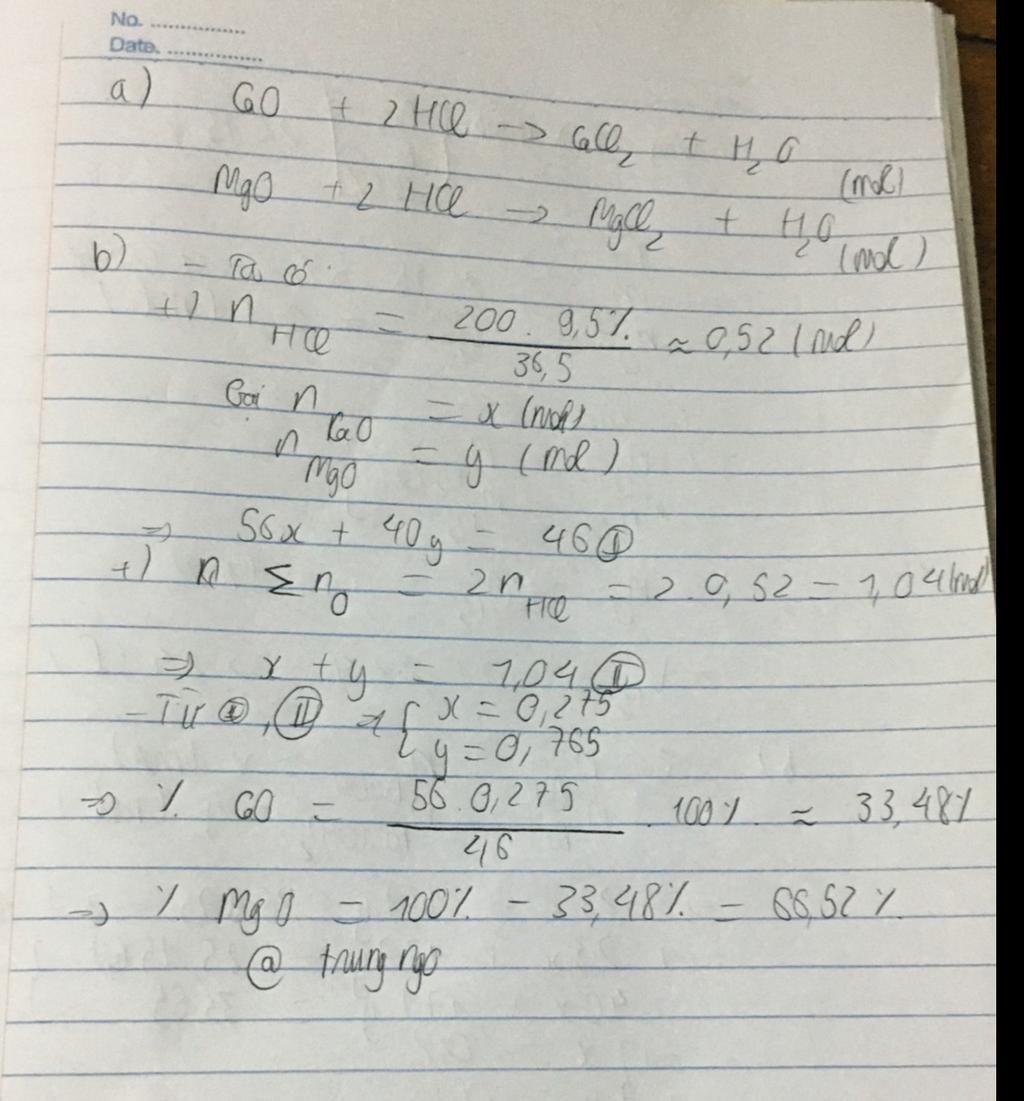 No. ...............
Date. ...............
a) CaO + 2HCl → CaCl₂ + H₂O
(mol)
MgO + 2 HCl → MgCl₂ + H₂O
(mol)
b) - Ta có:
+) n HCl = 200 . 9,5% / 36,5 ≈ 0,52 (mol)
Gọi n CaO = x (mol)
n MgO = y (mol)
⇒ 56x + 40y = 46 Ⓘ
+) Σ n O = 2n HCl = 2.0,52 = 1,04 (mol)
⇒ x + y = 1,04 (II)
- Từ (I), (II) ⇒ { x = 0,275
y = 0,765
⇒ % CaO = 56 . 0,275 / 46 . 100% ≈ 33,48%
⇒ % MgO = 100% - 33,48% = 66,52%
@ trungngo